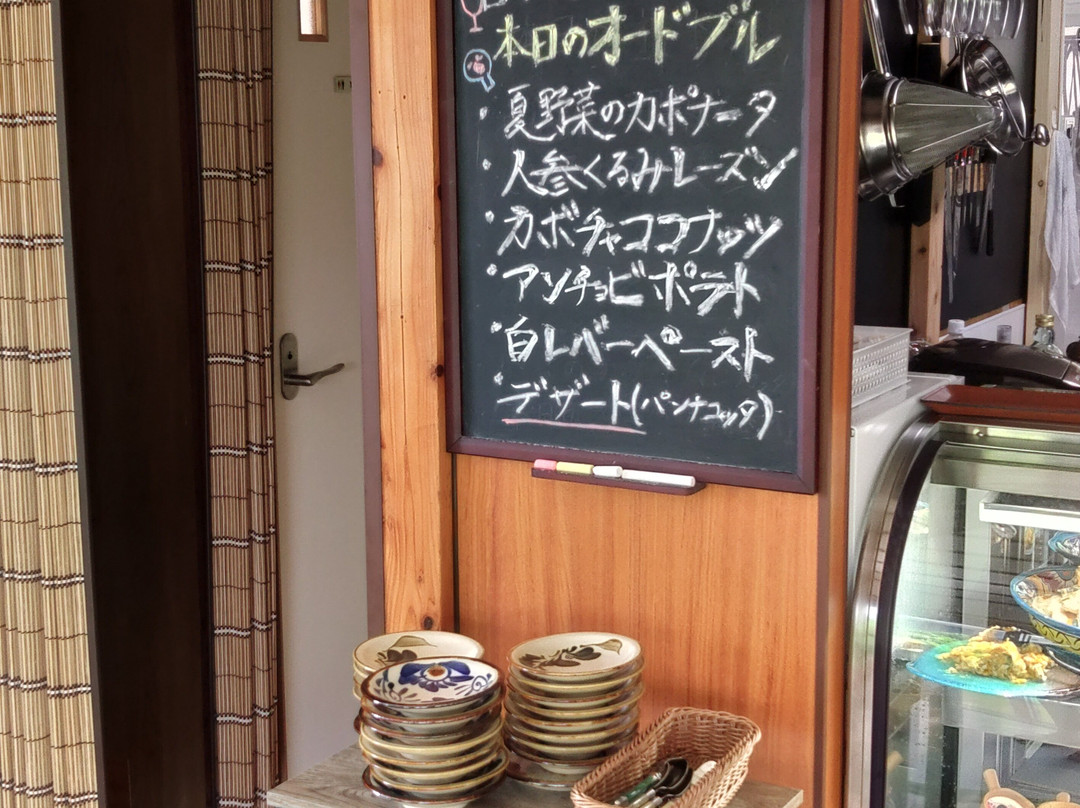 本日のオードブル
・夏野菜のカポナータ
・人参くるみレーズン
・カボチャココナッツ
・アンチョビポテト
・白レバーペースト
・デザート(パンナコッタ)